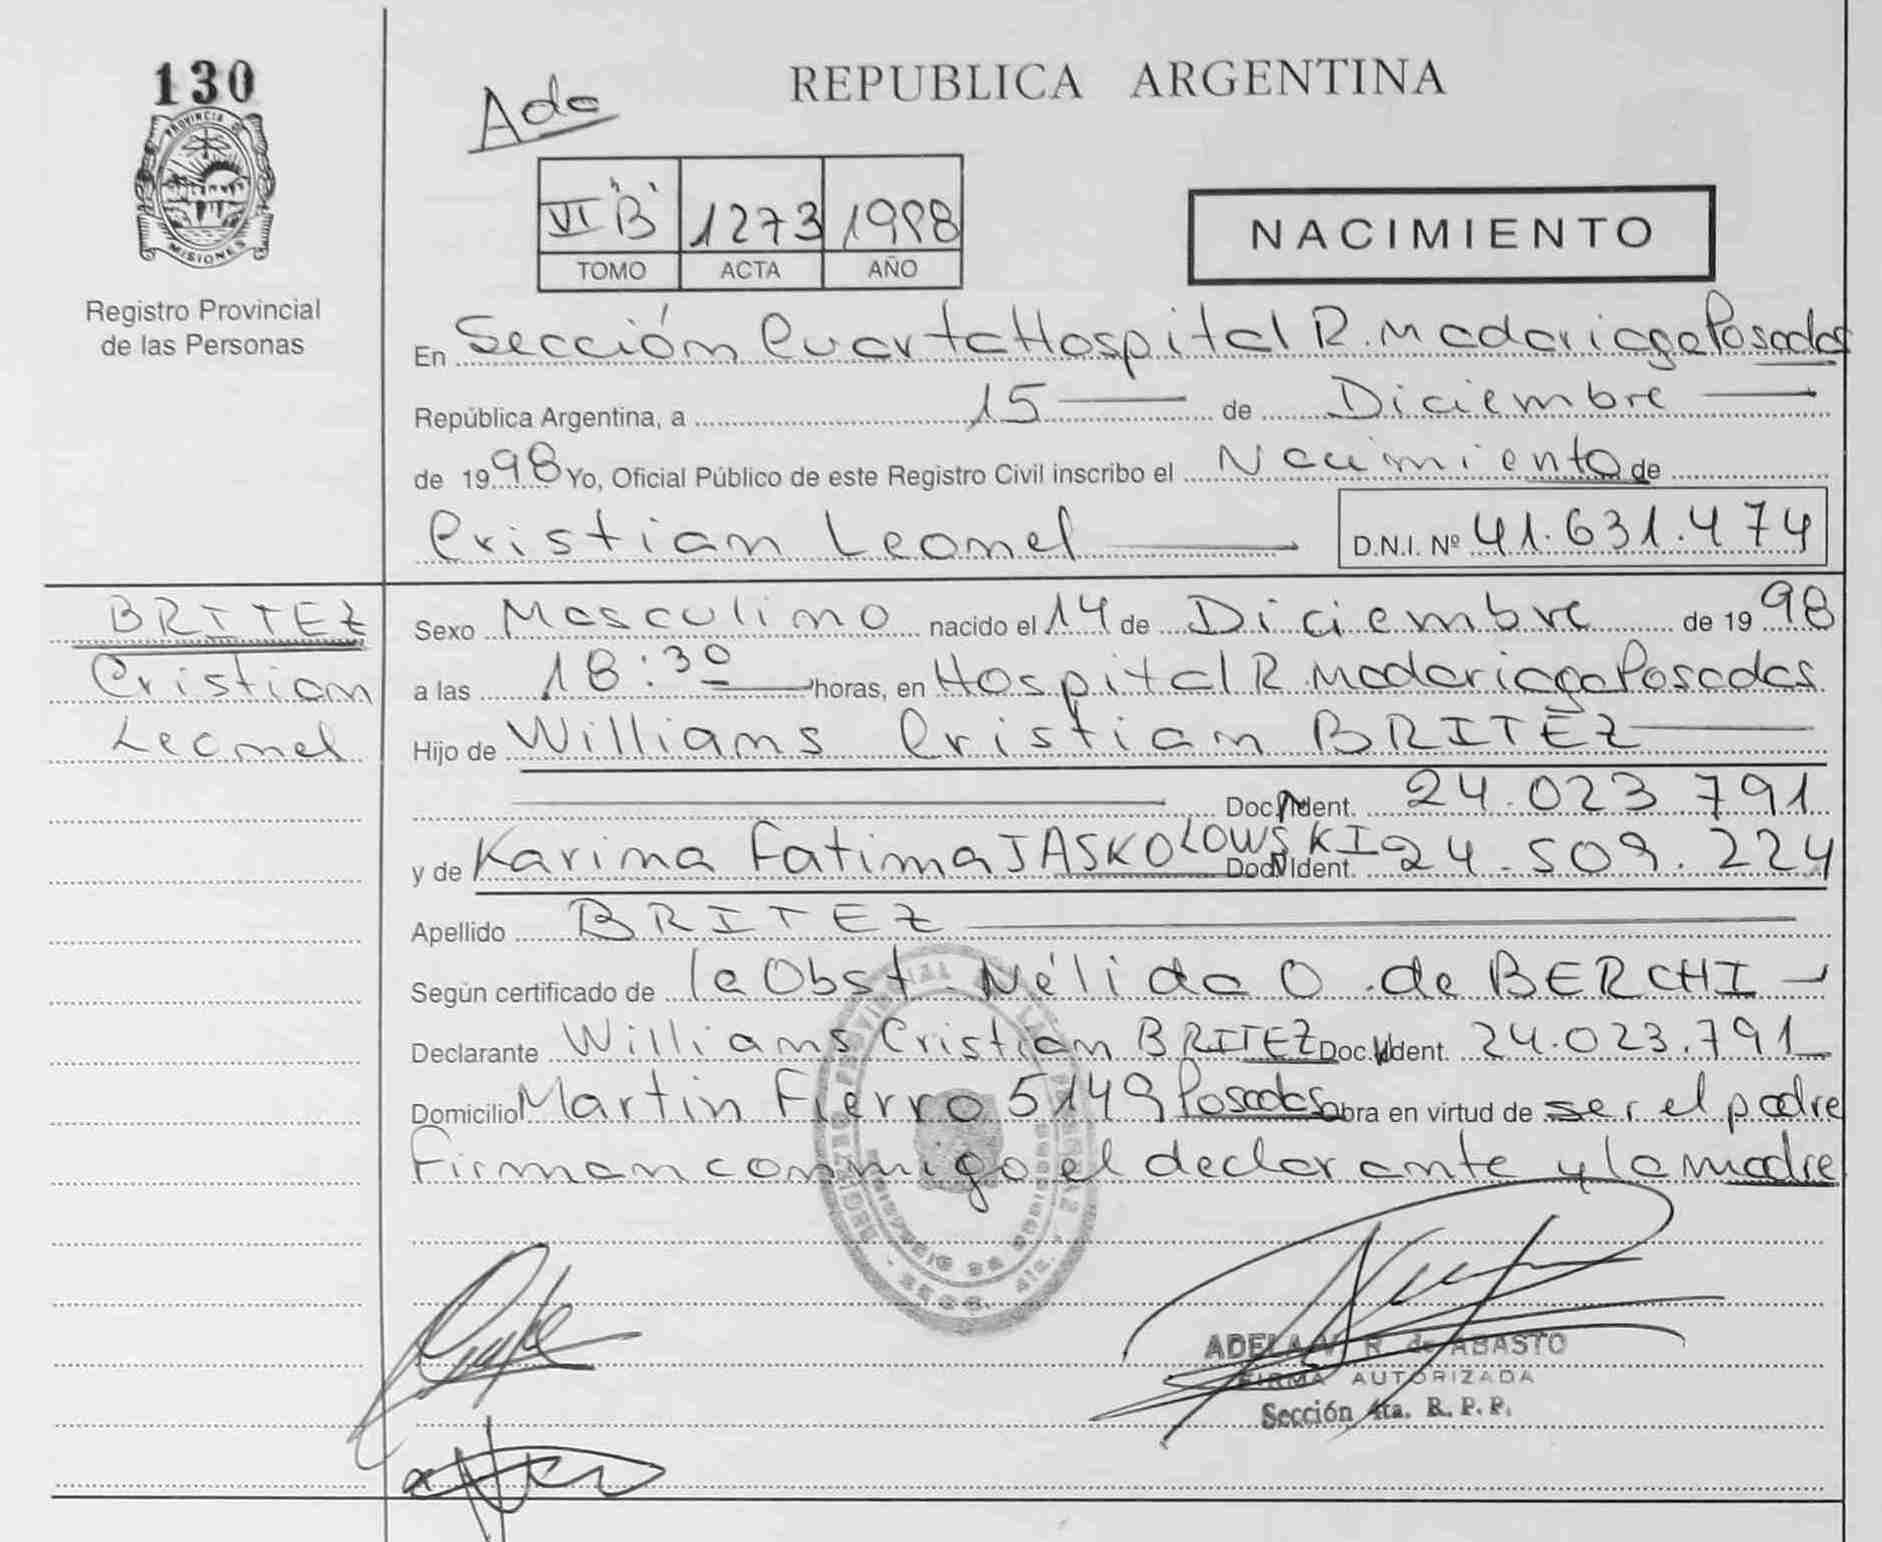 130
PROVINCIA DE
MISIONES
Registro Provincial
de las Personas
REPUBLICA ARGENTINA
VI "B" 1273 1998
TOMO ACTA AÑO
NACIMIENTO
En Sección Cuarta Hospital R. Madariaga Posadas
República Argentina, a 15 de Diciembre
de 1998 Yo, Oficial Público de este Registro Civil inscribo el Nacimiento de
Cristian Leonel D.N.I. Nº 41.631.474
BRITEZ
Cristian
Leonel
Sexo Masculino nacido el 14 de Diciembre de 1998
a las 18:30 horas, en Hospital R. Madariaga Posadas
Hijo de Williams Cristian BRITEZ
Doc. Ident. 24.023.791
y de Karina Fatima JASKOLOWSKI Doc. Ident. 24.509.224
Apellido BRITEZ
Según certificado de la Obst. Nélida O. de BERCHI
Declarante Williams Cristian BRITEZ Doc. Ident. 24.023.791
Domicilio Martin Fierro 5149 Posadas Obra en virtud de ser el padre
Firman conmigo el declarante y la madre
ADELA R. de ABASTO
FIRMA AUTORIZADA
Sección 4ta. R. P. P.